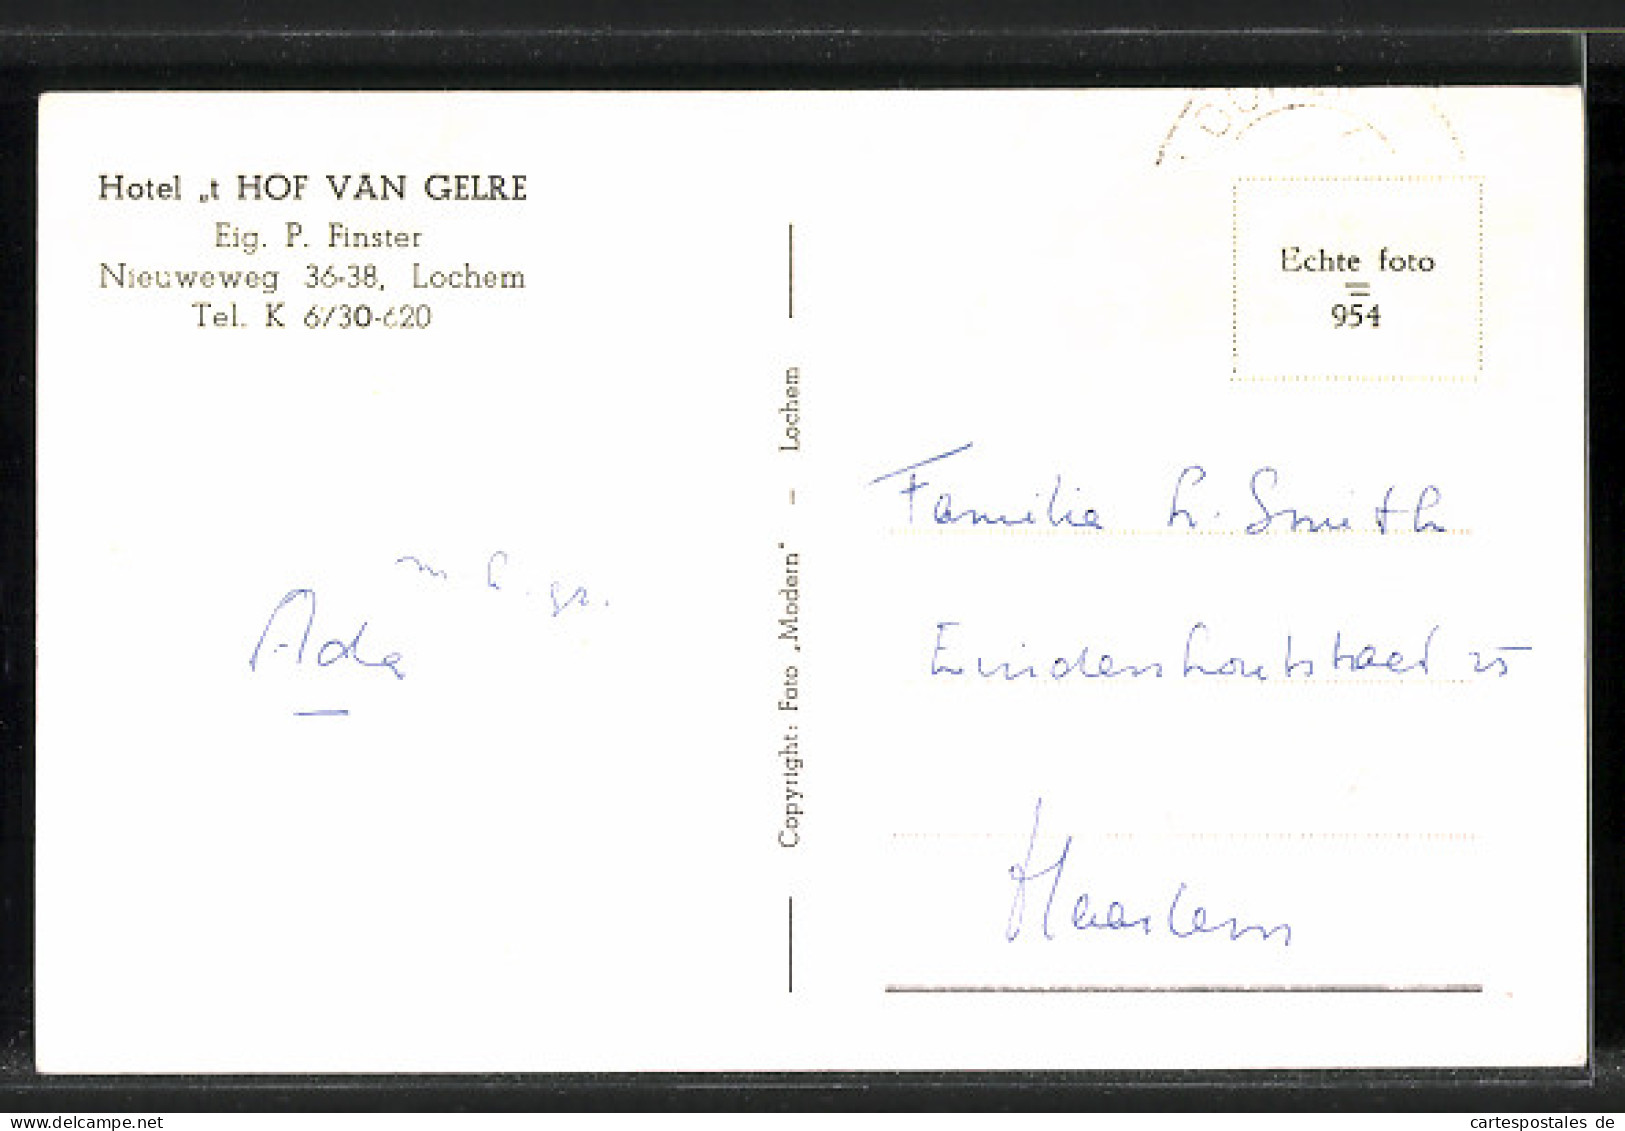 Hotel „t HOF VAN GELRE
Eig. P. Finster
Nieuweweg 36-38, Lochem
Tel. K 6730-620
Echte foto
=
954
Copyright: Foto „Modern" – Lochem
m. h. gr.
Ada
Familie h. Smith
25
Haarlem
cartespostales de